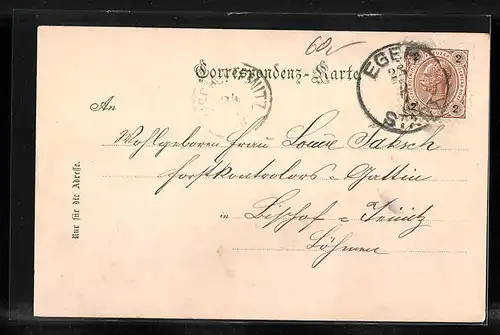 62
Correspondenz-Karte
EGER
2 2
2 2
NITZ
An
Wohlgeboren Frau Louise Taksch
Forstkontrolors-Gattin
in Bischof=Teinitz
Böhmen
Nur für die Adresse.